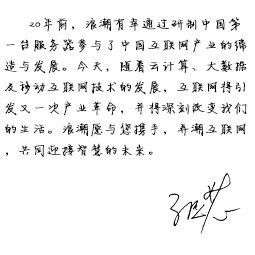 20年前，浪潮有幸通过研制中国第
一台服务器参与了中国互联网产业的缔
造与发展。今天，随着云计算、大数据
及移动互联网技术的发展，互联网将引
发又一次产业革命，并将深刻改变我们
的生活。浪潮愿与您携手，弄潮互联网
，共同迎接智慧的未来。